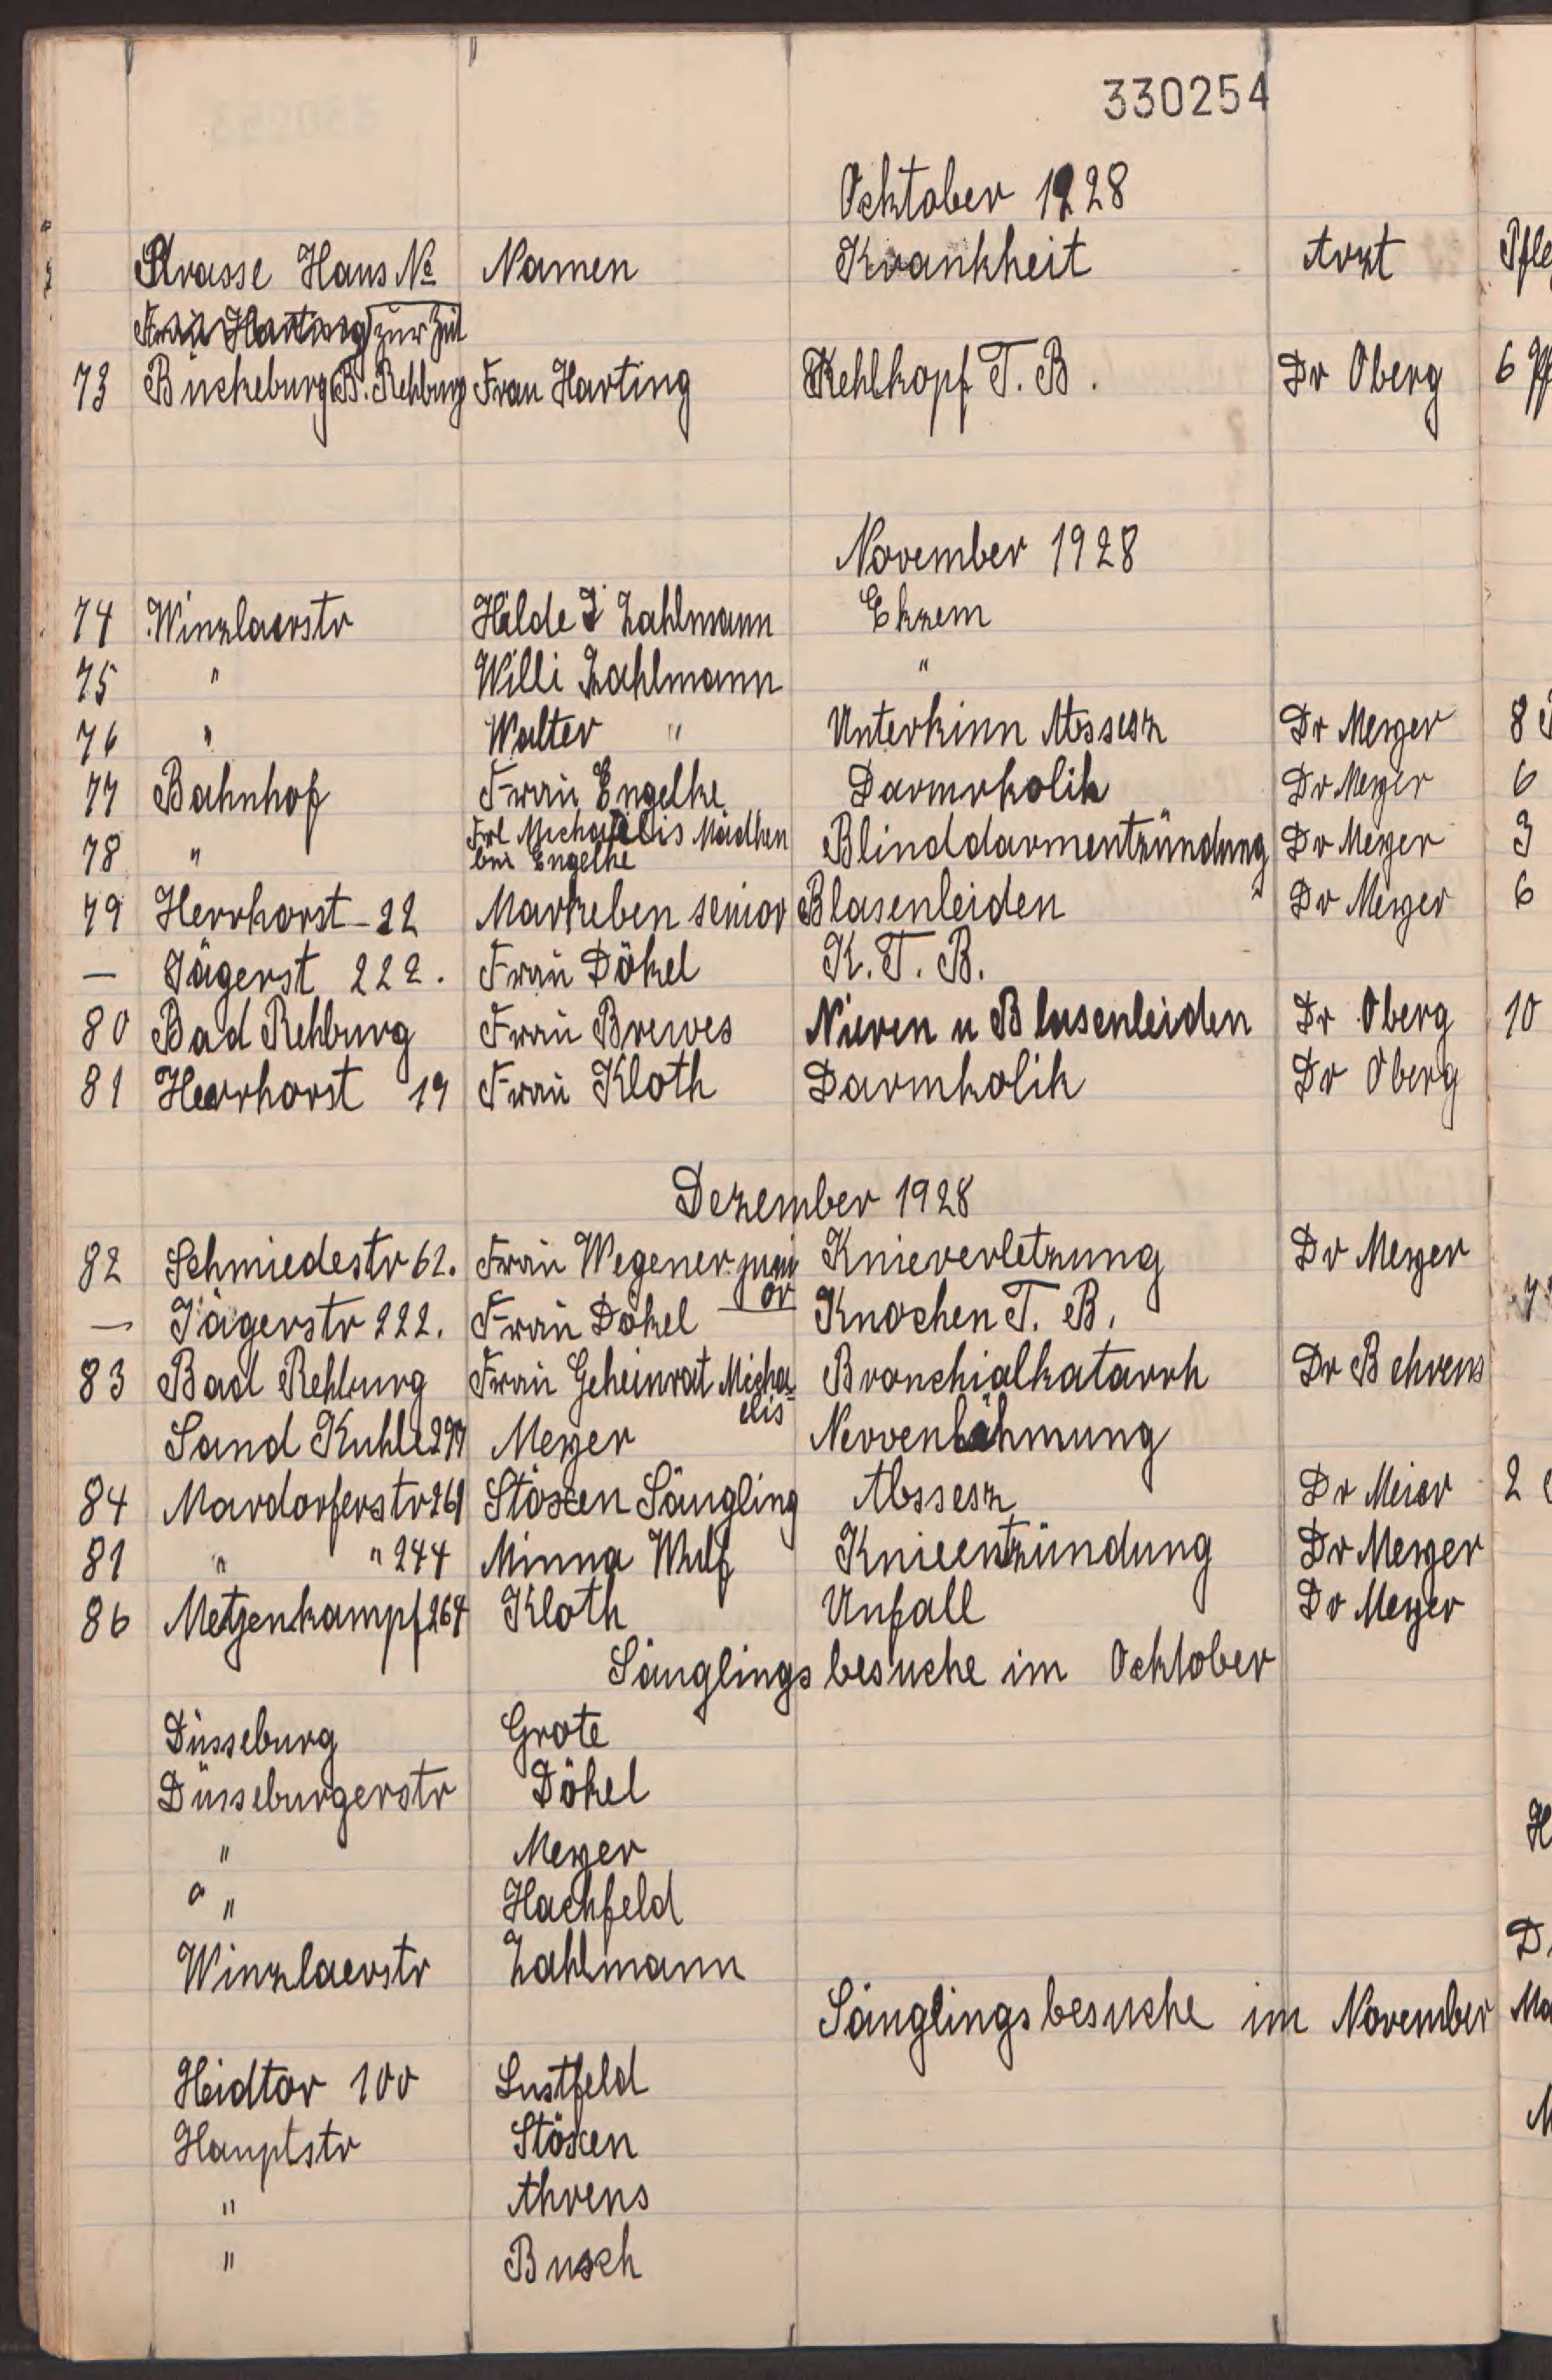 330254
Ocktober 1928
Strasse Haus No Namen Krankheit Arzt Pfle
Frau Harting zur Zeit
73 Bückeburg B. Rehburg Frau Harting Kehlkopf T. B. Dr Oberg 6
November 1928
74 Winzlaerstr Hilde Zahlmann Ekzem
75 " Willi Zahlmann "
76 " Walter " Unterkinn Abssesz Dr Meyer 8
77 Bahnhof Frau Engelke Darmrkolik Dr Meyer 6
78 " Frl Michaelis Mädhen Blinddarmentzündung Dr Meyer 3
bei Engelke
79 Herrhorst - 22 Markeben senior Blasenleiden Dr Meyer 6
— Jägerst 222. Frau Dökel K. T. B.
80 Bad Rehburg Frau Brewes Nieren u Blasenleiden Dr Oberg 10
81 Herrhorst 19 Frau Kloth Darmkolik Dr Oberg
Dezember 1928
82 Schmiedestr 62. Frau Wegener juni Knieverletzung Dr Meyer
or
— Jägerstr 222. Frau Dökel Knochen T. B.
83 Bad Rehburg Frau Geheimrat Micha= Bronchialkatarrh Dr Behrens
elis
Sand Kuhle 297 Meyer Nervenlähmung
84 Mardorferstr 261 Stöxen Säugling Abssesz Dr Meier 2
81 " " 244 Minna Wulf Knieentzündung Dr Meyer
86 Metzenkampf 264 Kloth Unfall Dr Meyer
Säuglingsbesuche im Ocktober
Düsseburg Grote
Düsseburgerstr Dökel
" Meyer
" Hachfeld
Winzlaerstr Zahlmann
Säuglingsbesuche im November
Heidtor 100 Lustfeld
Hauptstr Stöxen
" Ahrens
" Busch